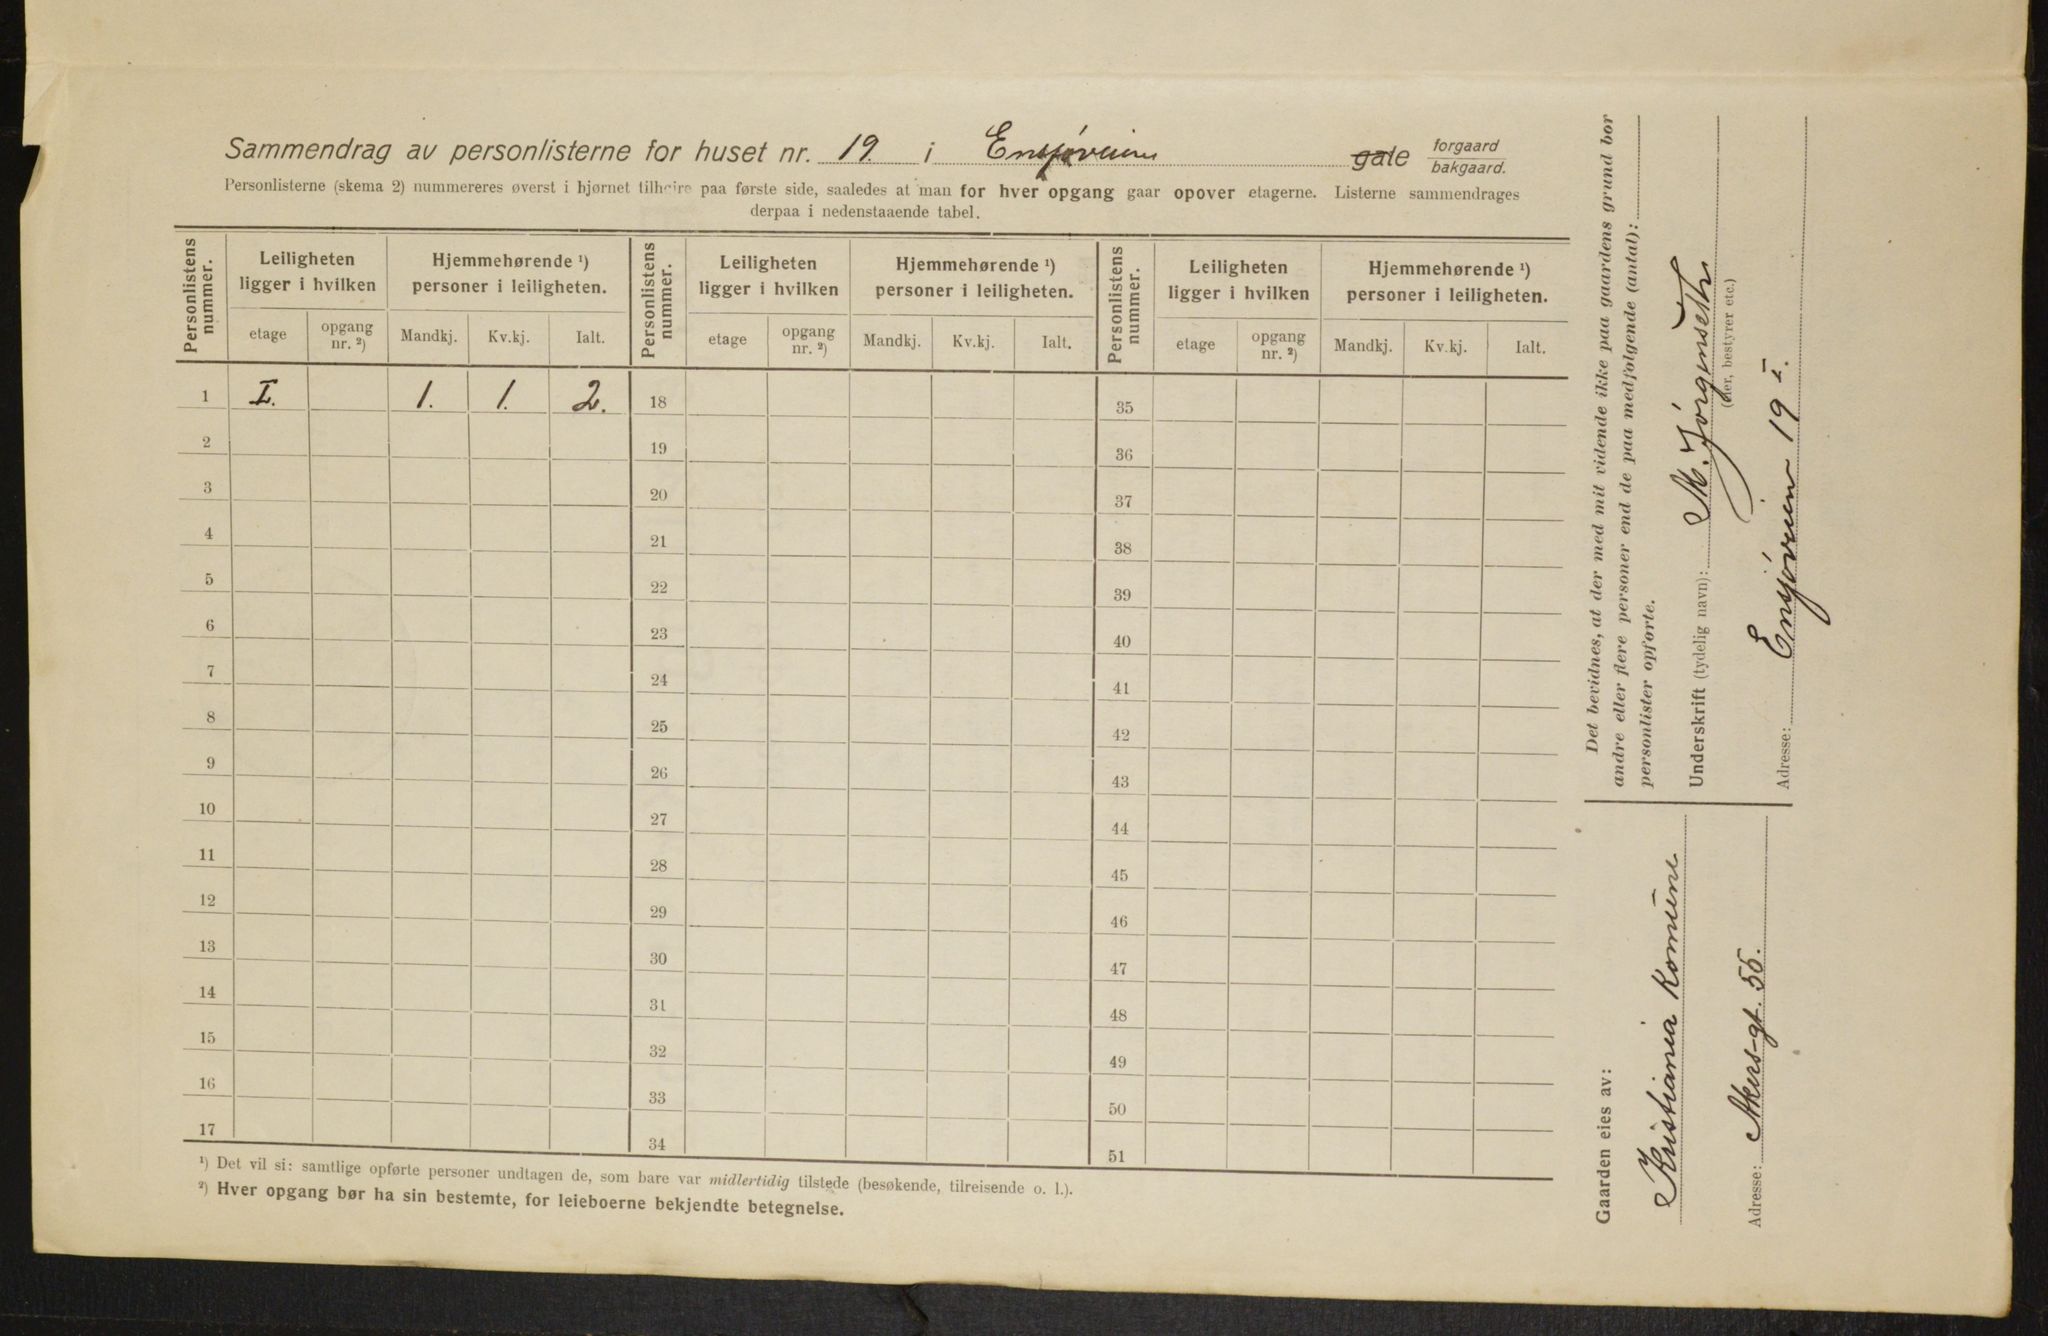 Sammendrag av personlisterne for huset nr. 19. i Ensjøveien gate forgaard bakgaard.
Personlisterne (skema 2) nummereres øverst i hjørnet tilhøire paa første side, saaledes at man for hver opgang gaar opover etagerne. Listerne sammendrages
derpaa i nedenstaaende tabel.
Personlistens nummer. Leiligheten ligger i hvilken Hjemmehørende ¹) personer i leiligheten. Personlistens nummer. Leiligheten ligger i hvilken Hjemmehørende ¹) personer i leiligheten. Personlistens nummer. Leiligheten ligger i hvilken Hjemmehørende ¹) personer i leiligheten.
etage opgang nr. ²) Mandkj. Kv.kj. Ialt. etage opgang nr. ²) Mandkj. Kv.kj. Ialt. etage opgang nr. ²) Mandkj. Kv.kj. Ialt.
1 I. 1. 1. 2. 18 35
2 19 36
3 20 37
4 21 38
5 22 39
6 23 40
7 24 41
8 25 42
9 26 43
10 27 44
11 28 45
12 29 46
13 30 47
14 31 48
15 32 49
16 33 50
17 34 51
¹) Det vil si: samtlige opførte personer undtagen de, som bare var midlertidig tilstede (besøkende, tilreisende o. l.).
²) Hver opgang bør ha sin bestemte, for leieboerne bekjendte betegnelse.
Det bevidnes, at der med mit vidende ikke paa gaardens grund bor
andre eller flere personer end de paa medfølgende (antal):
personlister opførte.
Underskrift (tydelig navn): M. Jørgenseth
(eier, bestyrer etc.)
Adresse: Ensjøveien 19 I.
Gaarden eies av:
Kristiania Komune
Adresse: Akers-gt. 55.